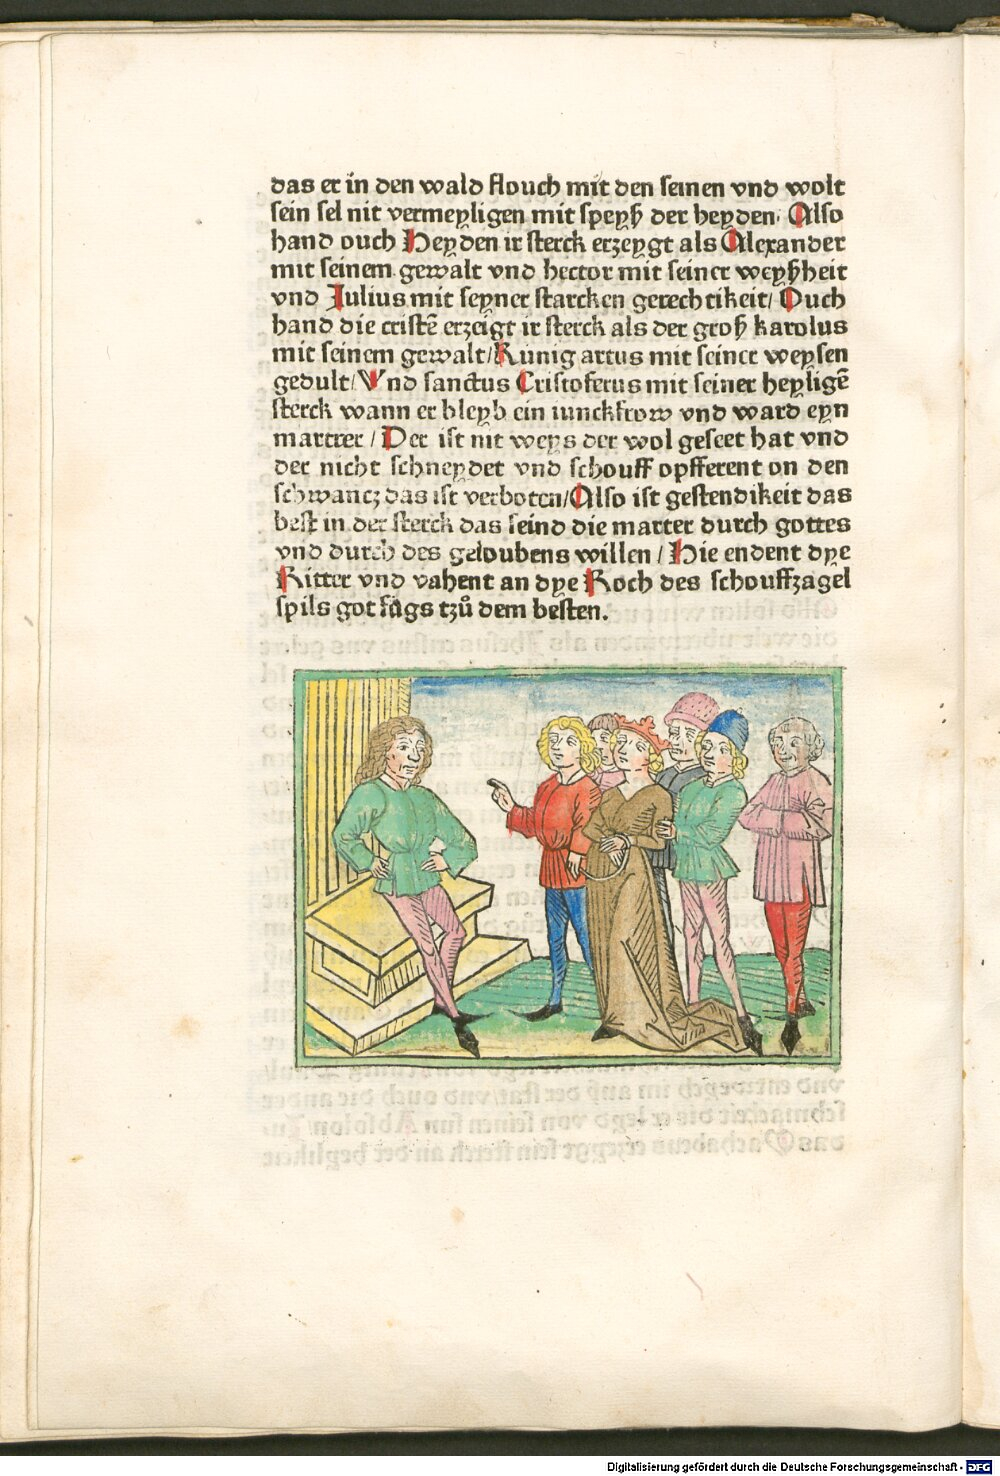 das er in den wald flouch mit den seinen vnd wolt
sein sel nit vermeyligen mit speyß der heyden. Also
hand ouch Heyden ir sterck erzeygt als Alexander
mit seinem gewalt vnd hector mit seiner weyßheit
vnd Julius mit seyner starcken gerechtikeit/ Ouch
hand die cristē erzeigt ir sterck als der groß karolus
mit seinem gewalt/ Kunig artus mit seiner weysen
gedult/ Vnd sanctus Cristoferus mit seiner heyligē
sterck wann er bleyb ein iunckfrow vnd ward eyn
martrer / Der ist nit weys der wol geseet hat vnd
der nicht schneydet vnd schouff opfferent on den
schwancz das ist verboten/ Also ist gestendikeit das
best in der sterck das seind die marter durch gottes
vnd durch des geloubens willen / Hie endent dye
Ritter vnd vahent an dye Roch des schouffzagel
spils got fůgs tzů dem besten.
Digitalisierung gefördert durch die Deutsche Forschungsgemeinschaft - DFG